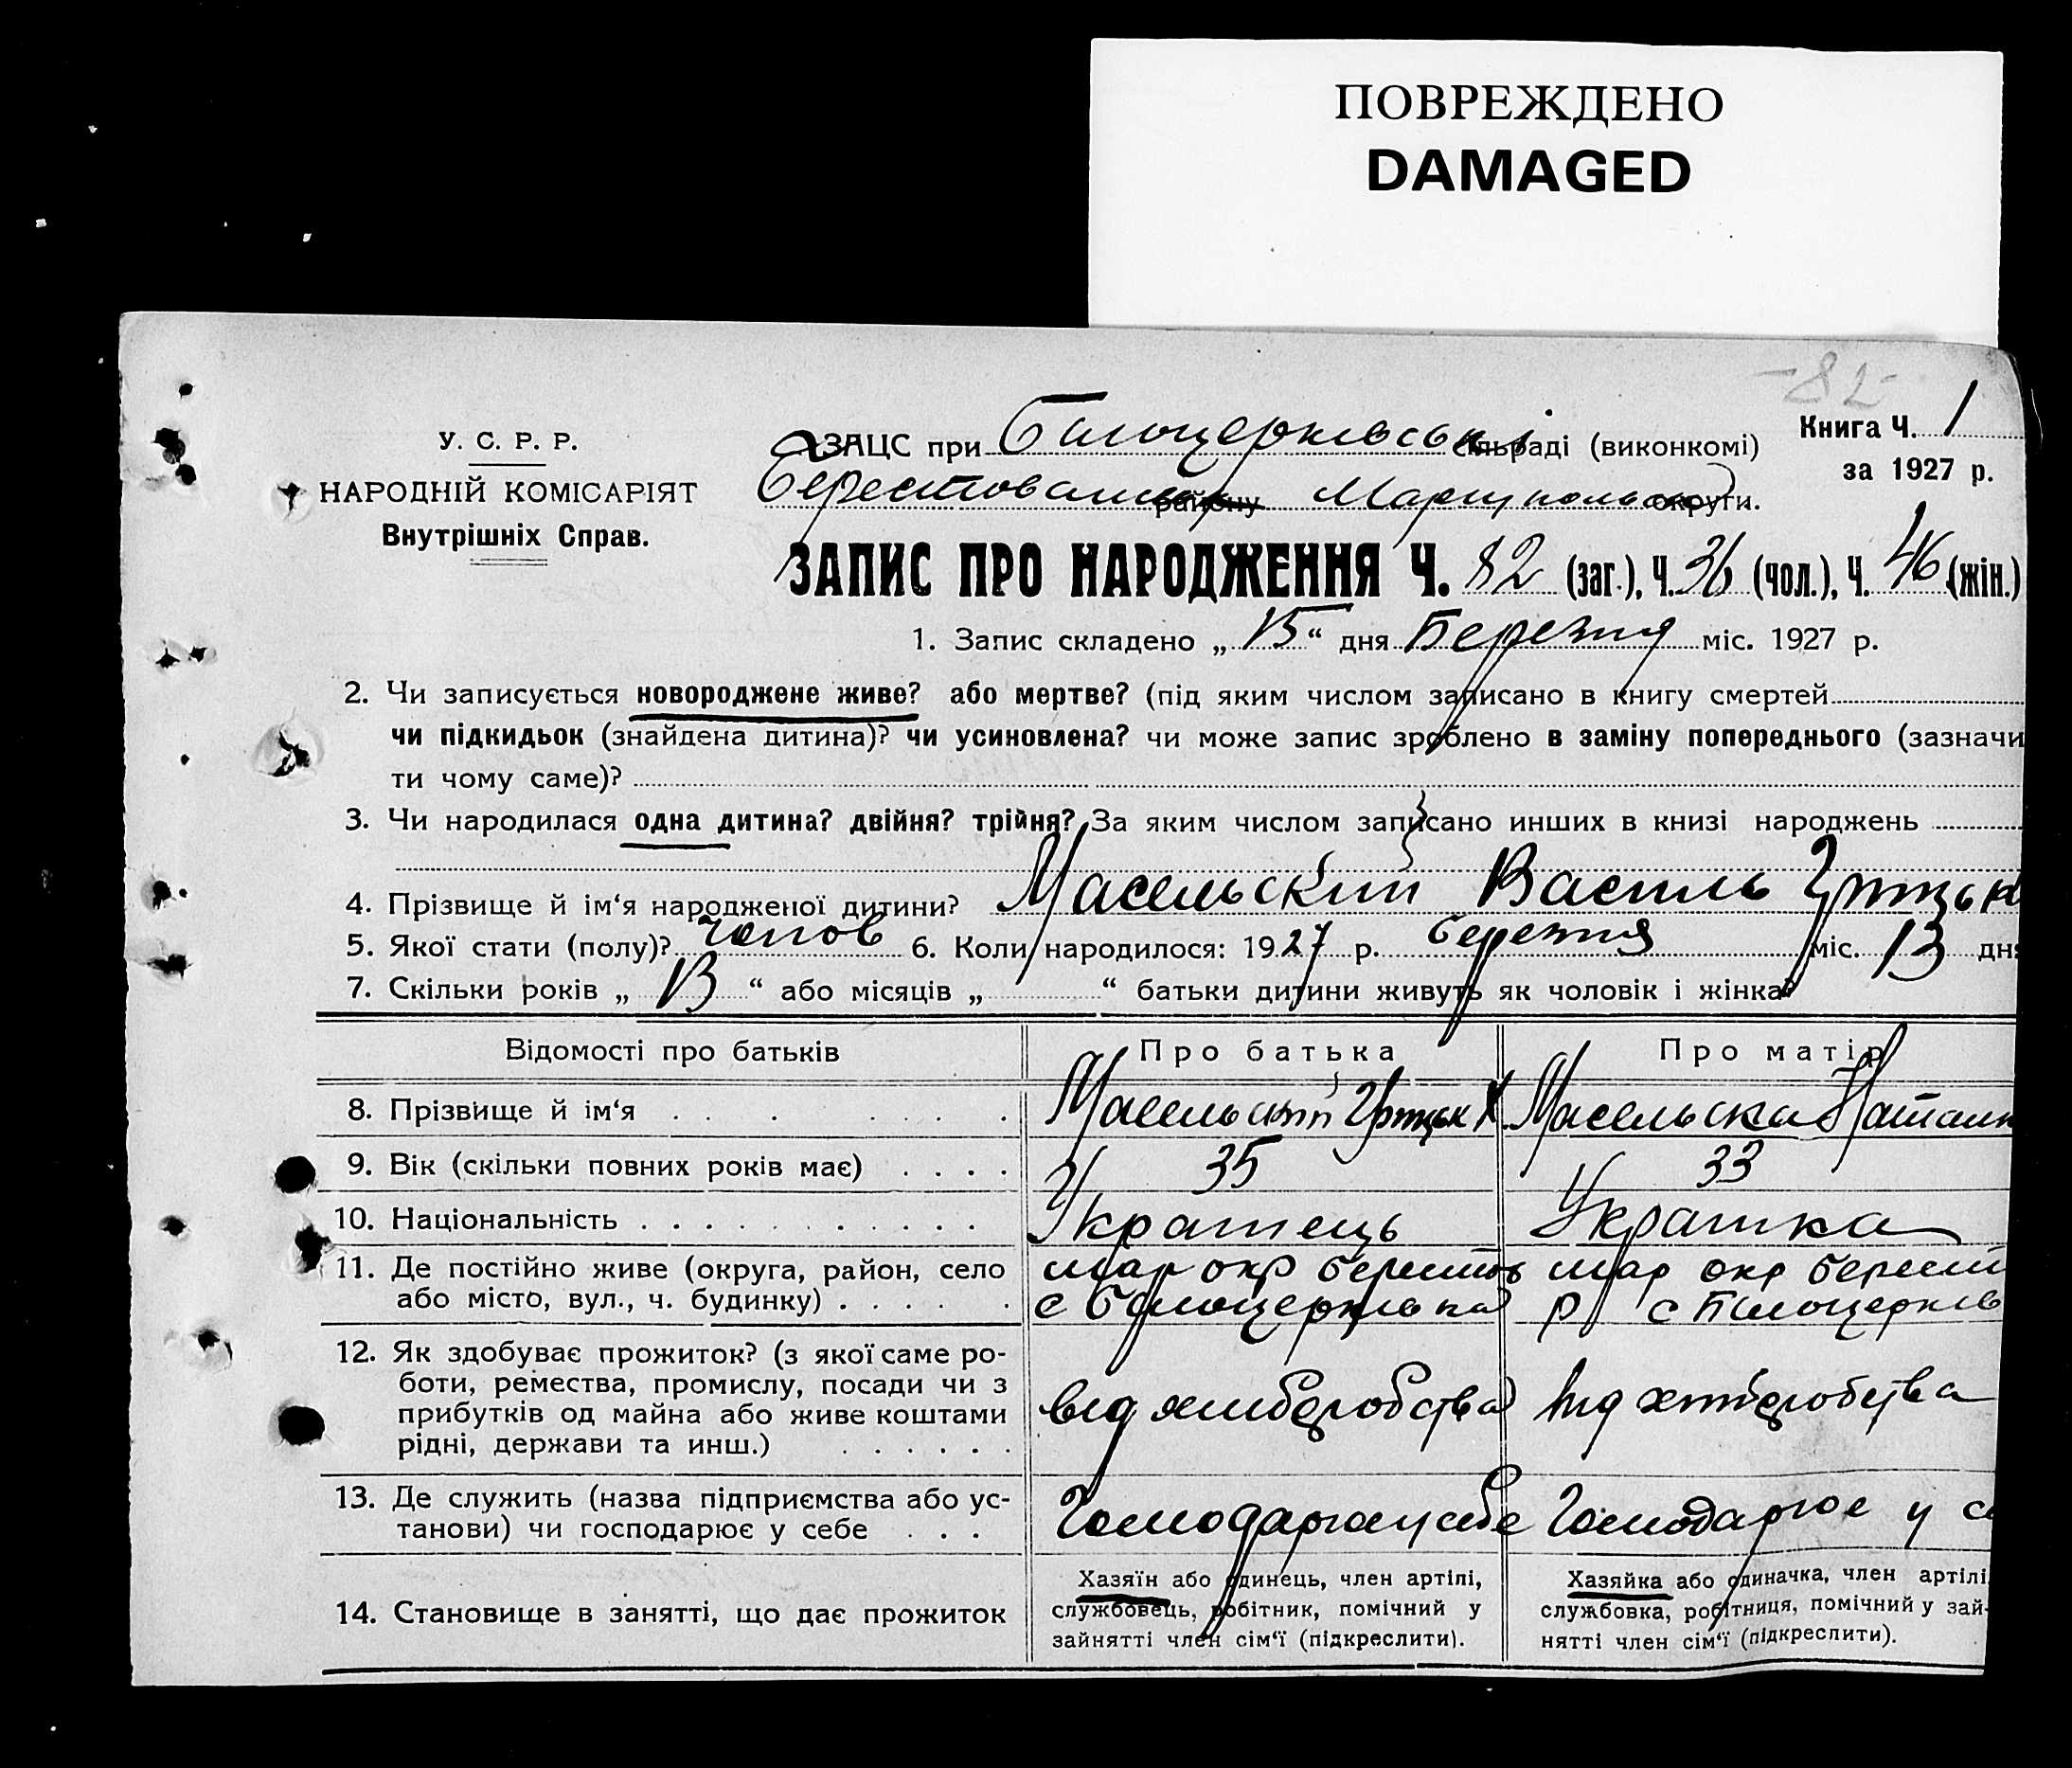 ПОВРЕЖДЕНО
DAMAGED
-82-
У. С. Р. Р.
НАРОДНІЙ КОМІСАРІЯТ
Внутрішніх Справ.
ЗАЦС при Білоцерківській сільраді (виконкомі)
Книга Ч. 1
за 1927 р.
району округи.
ЗАПИС ПРО НАРОДЖЕННЯ Ч. 82 (заг.), Ч. 36 (чол.), Ч. 46 (жін.)
1. Запис складено „15“ дня Березня міс. 1927 р.
2. Чи записується новороджене живе? або мертве? (під яким числом записано в книгу смертей
чи підкидьок (знайдена дитина)? чи усиновлена? чи може запис зроблено в заміну попереднього (зазначи
ти чому саме)?
3. Чи народилася одна дитина? двійня? трійня? За яким числом записано инших в книзі народжень
4. Прізвище й ім‘я народженої дитини? Масельский Василь
5. Якої стати (полу)? чолов 6. Коли народилося: 1927 р. березня міс. 13 дня
7. Скільки років „13“ або місяців „ “ батьки дитини живуть як чоловік і жінка?
Відомості про батьків Про батька Про матір
8. Прізвище й ім‘я Масельский Грицьк Масельська Наталк
9. Вік (скільки повних років має) 35 33
10. Національність Українець Українка
11. Де постійно живе (округа, район, село мар окр берестов мар окр берест
або місто, вул., ч. будинку) с Білоцерківка р с Білоцерків
12. Як здобуває прожиток? (з якої саме ро-
боти, ремества, промислу, посади чи з
прибутків од майна або живе коштами від хліборобства від хліборобства
рідні, держави та инш.)
13. Де служить (назва підприємства або ус-
танови) чи господарює у себе Господарює у себе Господарює у се
14. Становище в занятті, що дає прожиток
Хазяїн або одинець, член артілі,
службовець, робітник, помічний у
зайнятті член сім‘ї (підкреслити).
Хазяйка або одиначка, член артілі
службовка, робітниця, помічний у зай-
нятті член сім‘ї (підкреслити).